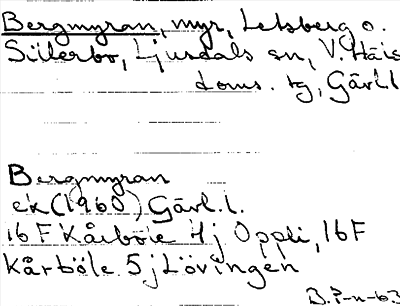 Bergmyran, myr, Letsberg o.
Sillerbo, Ljusdals sn, V. Häls
doms. tg, Gävl.l
Bergmyran
ek (1960) Gävl.l.
16F Kårböle 4j Oppli, 16F
Kårböle 5j Lövingen